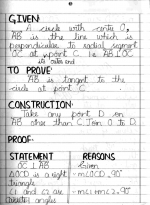 GIVEN:
A circle with centre O,
AB is the line which is
perpendicular to radial segment
OC at point C. i.e AB ⊥ OC
at outer end
TO PROVE:
AB is tangent to the
circle at point C.
CONSTRUCTION:
Take any point D on
AB other than C. Join O to D.
PROOF:
STATEMENT REASONS
OC ⊥ AB Given
ΔOCD is a right m∠OCD = 90°
triangle
∠1 and ∠2 are m∠1 + m∠2 = 90°
angles